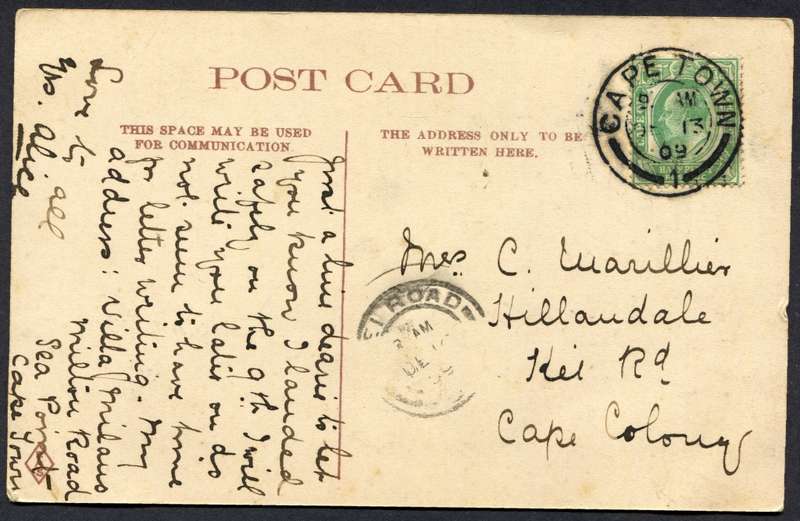 POST CARD
THIS SPACE MAY BE USED
FOR COMMUNICATION.
THE ADDRESS ONLY TO BE
WRITTEN HERE.
Just a line dearie to let
you know I landed
safely on the 9th. I will
write you later on do
not seem to have time
for letter writing. My
address: Villa Milans
Milton Road
Sea Point
Cape Town
Love to all
Yrs. Alice
CAPE TOWN
AM
13
09
1
HALF
Mrs C. Marillier
Hillandale
Kei Rd
Cape Colony
KEI ROAD
AM
DE